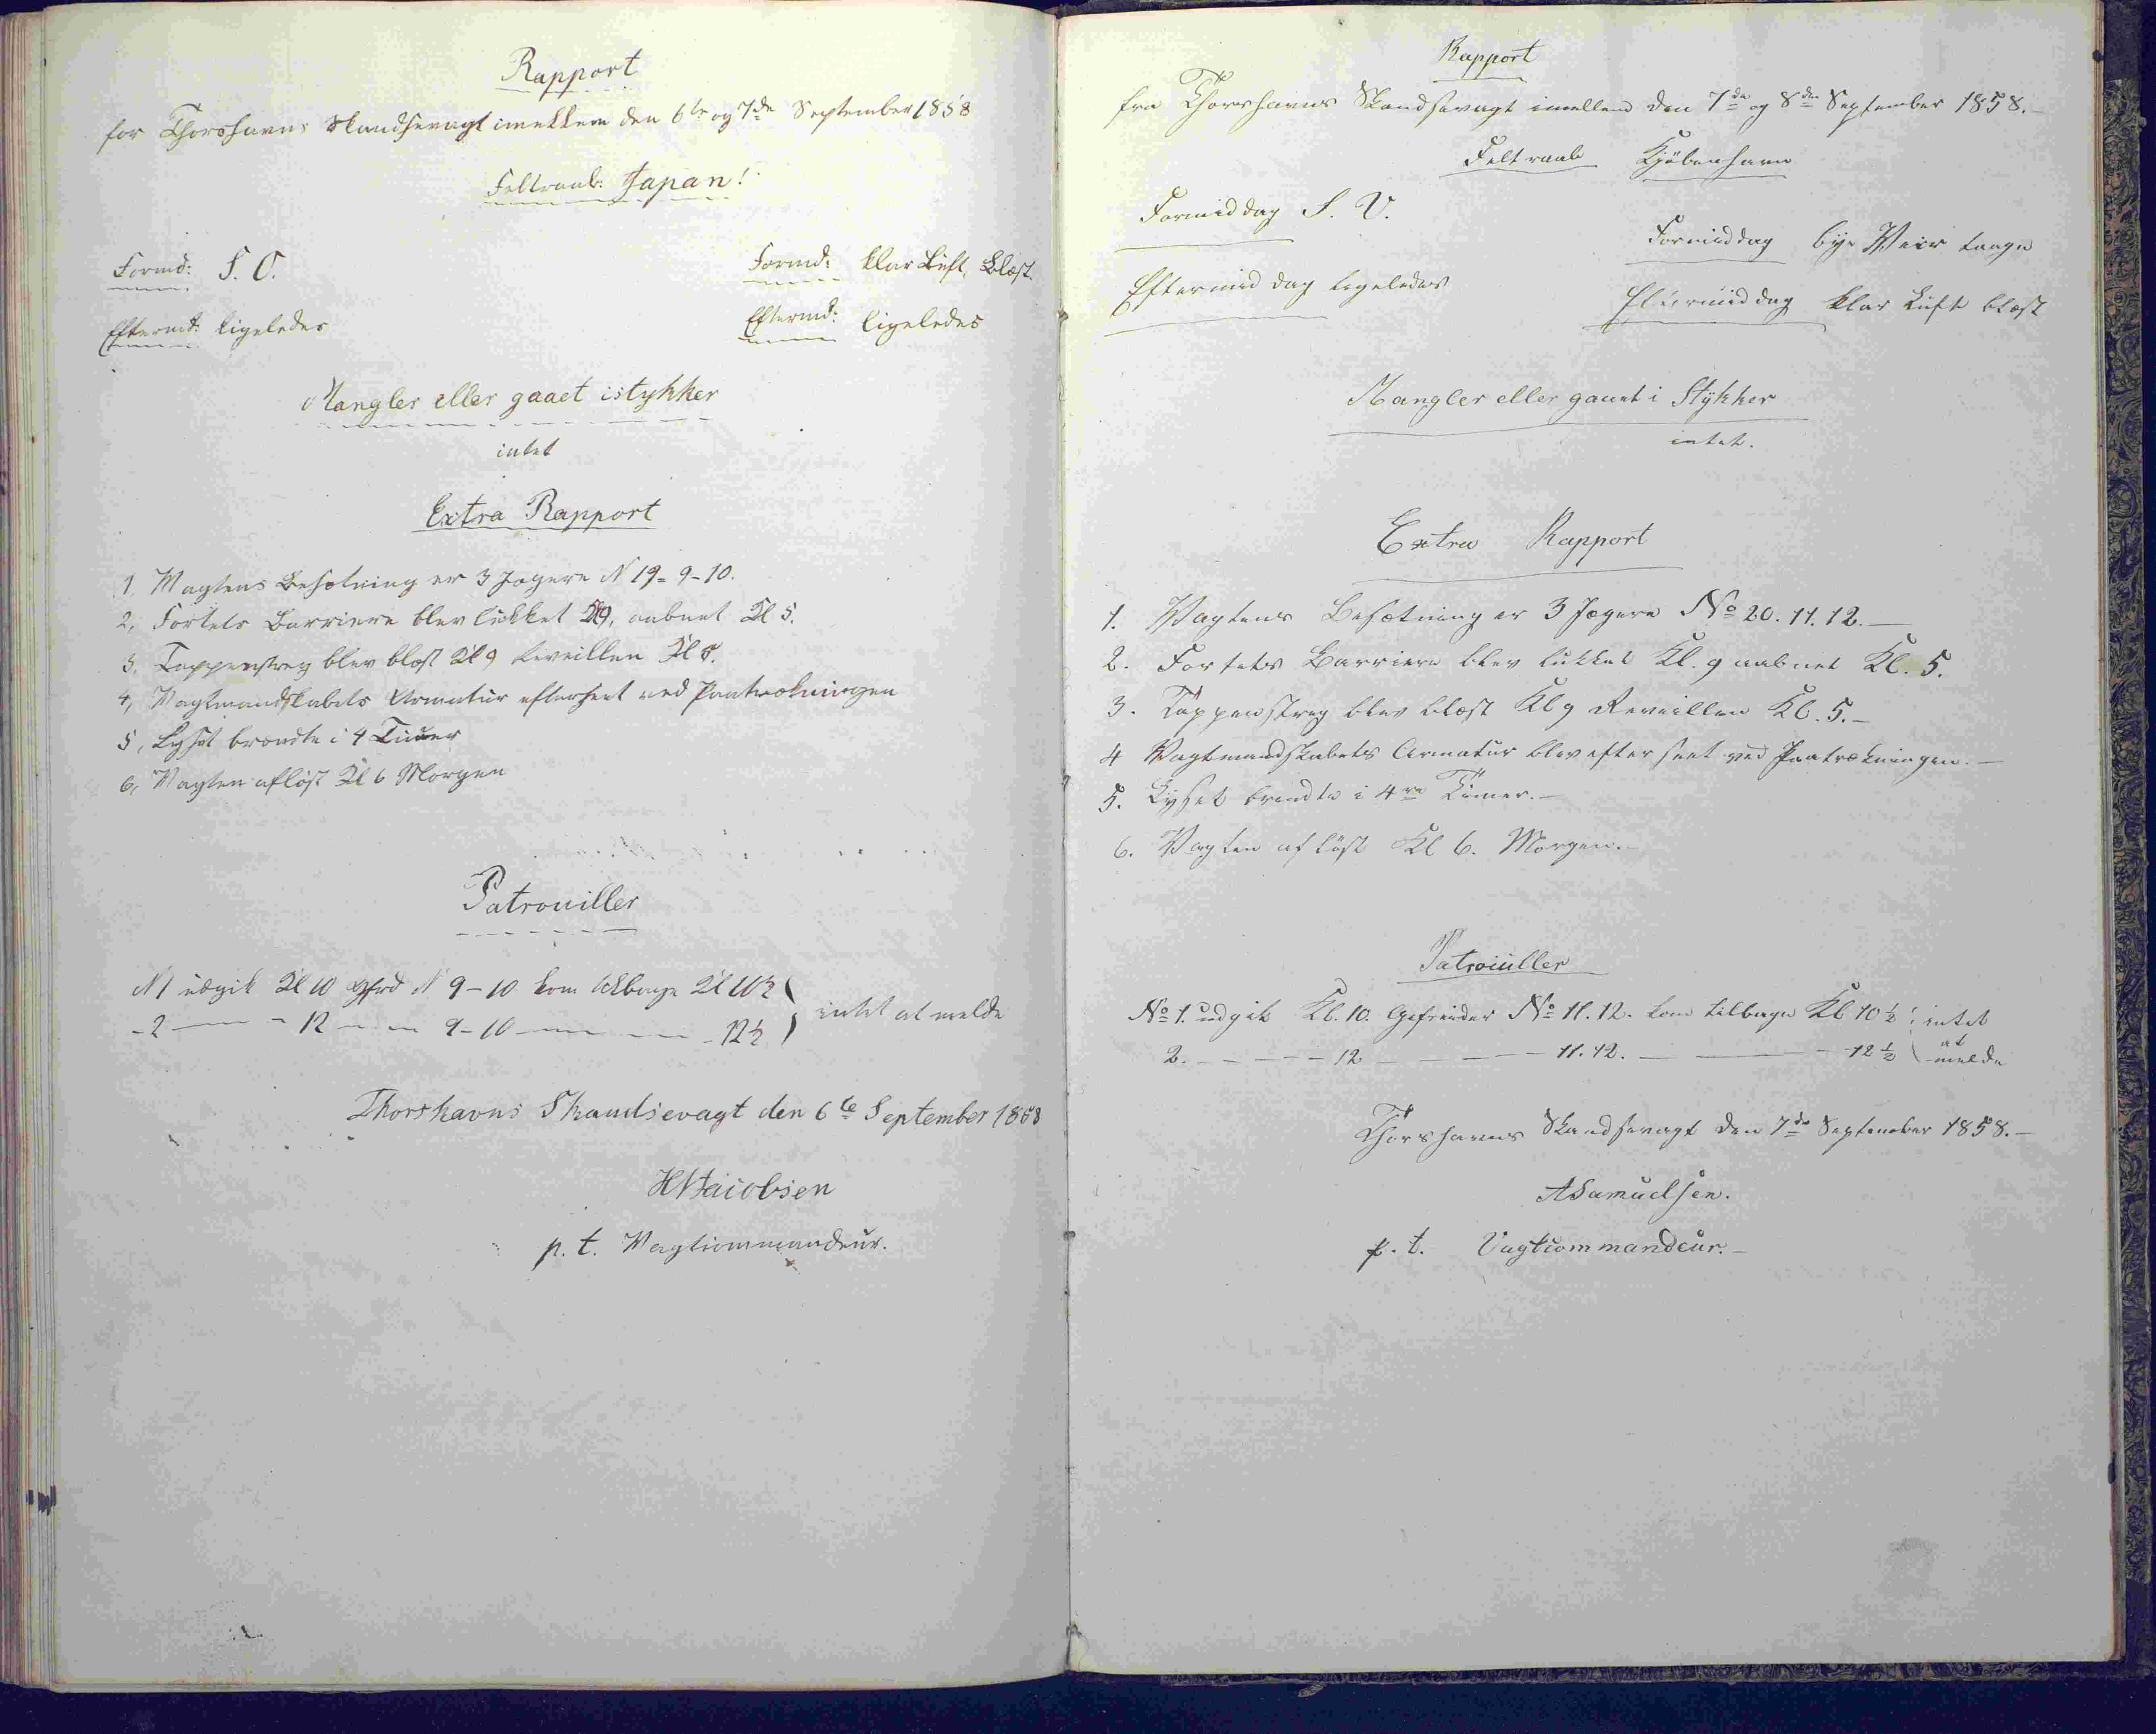 Rapport
for Thorshavns Skandsevagt imellem den 6te og 7de September 1858
Feltraab: Japan!
Formd: S. O.
Formd: klar Luft, Blæst.
Eftermd: ligeledes
Eftermd: ligeledes
Mangler eller gaaet istykker
intet
Extra Rapport
1, Vagtens Besætning er 3 Jægere N 19-9-10.
2, Fortets Barriere blev lukket Kl 9, aabnet Kl 5.
3, Tappenstreg blev blæst Kl 9 Reveillen Kl 5.
4, Vagtmandskabets Armatur efterseet ved Paatrækningen
5, Lyset brændte i 4 Timer
6, Vagten afløst Kl 6 Morgen
Patrouiller
N 1 udgik Kl 10 Gfrd N 9-10 kom tilbage Kl 10½ } intet at melde
- 2 — - 12 — — 9-10 — — - 12½
Thorshavns Skandsevagt den 6te September 1858
HJacobsen
p. t. Vagtcommandeur.
Rapport
fra Thorshavns Skandsevagt imellem den 7de og 8de September 1858.-
Feltraab Kjöbenhavn
Formiddag S. V.
Formiddag bye Veir taage
Eftermiddag ligeledes
Eftermiddag klar Luft blæst
Mangler eller gaaet i Stykker
intet.
Extra Rapport
1. Vagtens Besætning er 3 Jægere No 20. 11. 12.—
2. Fortets Barriere blev lukket Kl. 9 aabnet Kl. 5.
3. Tappenstreg blev blæst Kl 9 Reveillen Kl. 5.-
4 Vagtmandskabets Armatur blev efterseet ved Paatrækningen.—
5. Lyset brændte i 4re Timer.—
6. Vagten afløst Kl 6. Morgen.
Patrouiller
No 1. udgik Kl. 10. Gefreider No 11. 12. kom tilbage Kl 10½ } intet
2. - - - - 12 — - - - 11. 12. — — - 12½ at melde
Thorshavns Skandsevagt den 7de September 1858.—
ASamuelsen.
p. t. Vagtcommandeur.-